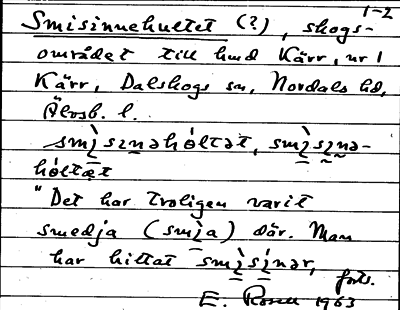 1-2
Smisinnehultet (?), skogs-
området till hmd Kärr, nr 1
Kärr, Dalskogs sn, Nordals hd,
Älvsb. l.
smì̱sı̱nəhóltət, smì̱sı̱nə-
hóltæt
"Det har troligen varit
smedja (smì̱a) där. Man
har hittat smì̱sí̱nər,
forts.
E. Rosell 1963